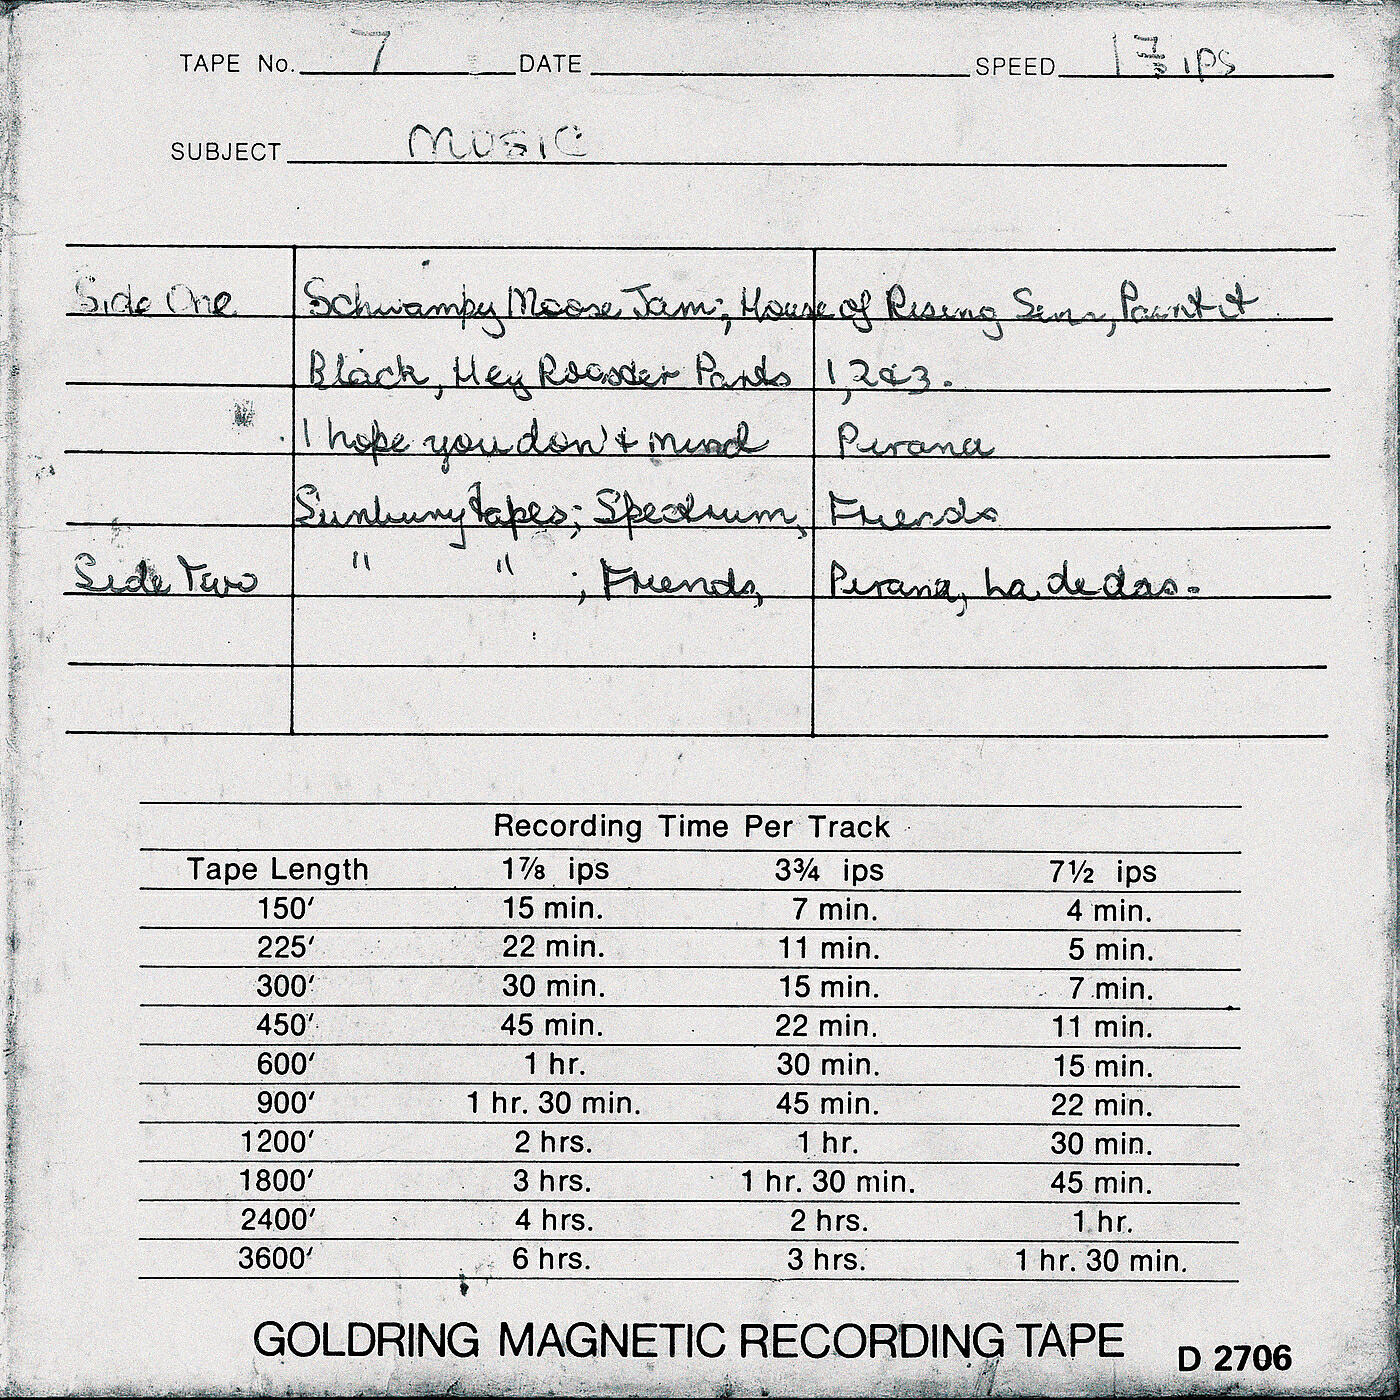 TAPE No. 7 DATE SPEED 1 7/8 ips
SUBJECT MUSIC
Side One Schwampy Moose Jam; House of Rising Sun, Paint it
Black, Hey Rooster Parts 1, 2 & 3.
I hope you don't mind Pirana
Sunbury tapes; Spectrum, Friends
Side Two " " ; Friends, Pirana, La de das.
Recording Time Per Track
Tape Length 1⅞ ips 3¾ ips 7½ ips
150′ 15 min. 7 min. 4 min.
225′ 22 min. 11 min. 5 min.
300′ 30 min. 15 min. 7 min.
450′ 45 min. 22 min. 11 min.
600′ 1 hr. 30 min. 15 min.
900′ 1 hr. 30 min. 45 min. 22 min.
1200′ 2 hrs. 1 hr. 30 min.
1800′ 3 hrs. 1 hr. 30 min. 45 min.
2400′ 4 hrs. 2 hrs. 1 hr.
3600′ 6 hrs. 3 hrs. 1 hr. 30 min.
GOLDRING MAGNETIC RECORDING TAPE D 2706